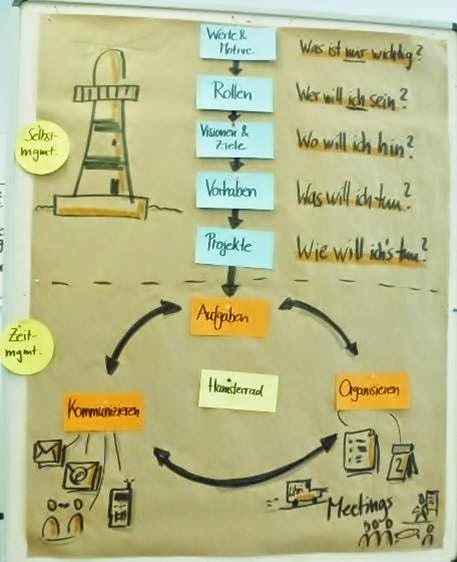 Werte &
Motive
Was ist mir wichtig?
Rollen
Wer will ich sein?
Selbst-
mgmt.
Visionen &
Ziele
Wo will ich hin?
Vorhaben
Was will ich tun?
Projekte
Wie will ich's tun?
Aufgaben
Zeit-
mgmt.
Hamsterrad
Kommunizieren
Organisieren
2
Meetings